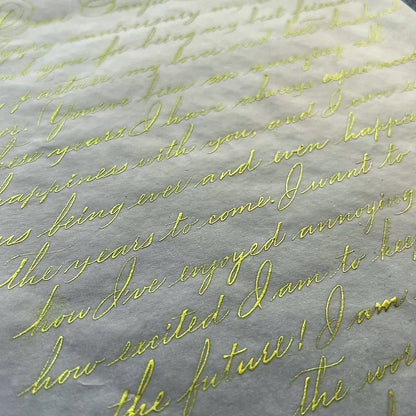 Dear
anniversary my
you for being my best friend
partner, my love and best husband
You've been an amazing
these years. I have always experienced
happiness with you, and I can
us being ever and even happier
the years to come. I want to
how I've enjoyed annoying
how excited I am to keep
the future! I am
the wor